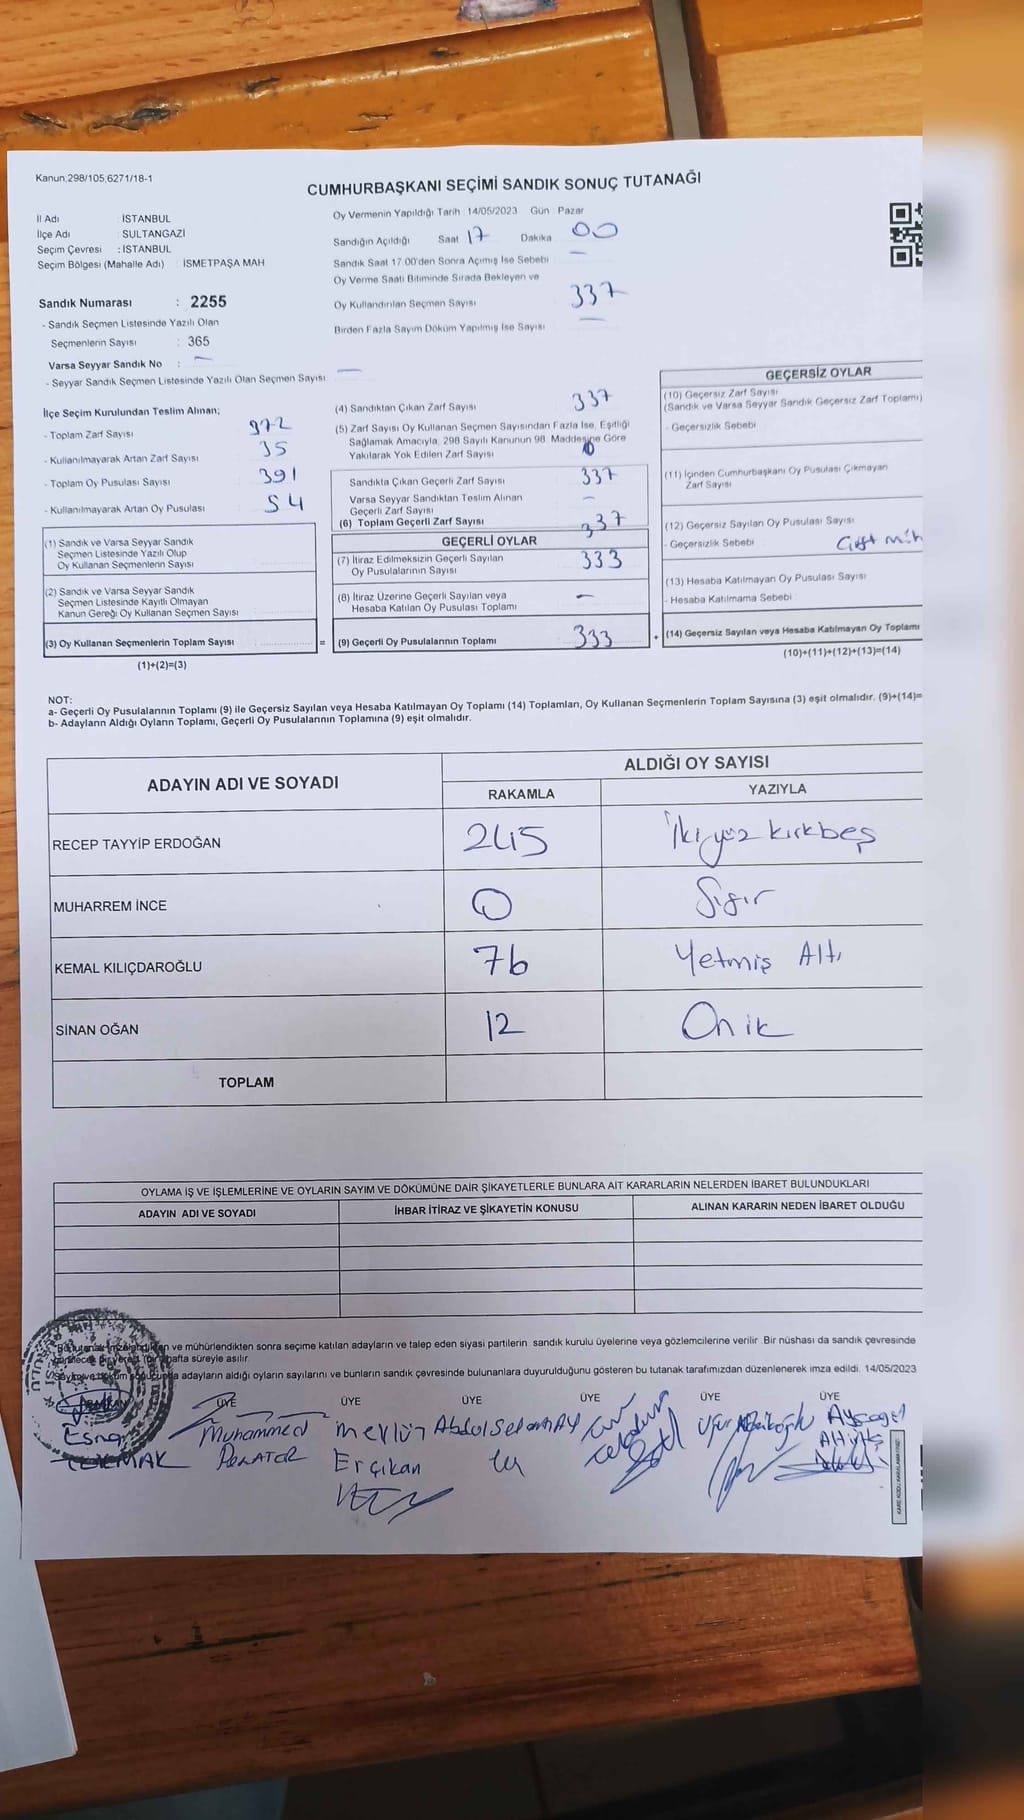 Kanun:298/105,6271/18-1
CUMHURBAŞKANI SEÇİMİ SANDIK SONUÇ TUTANAĞI
İl Adı : İSTANBUL
İlçe Adı : SULTANGAZİ
Seçim Çevresi : İSTANBUL
Seçim Bölgesi (Mahalle Adı) : İSMETPAŞA MAH
Sandık Numarası : 2255
- Sandık Seçmen Listesinde Yazılı Olan
Seçmenlerin Sayısı : 365
Varsa Seyyar Sandık No : —
- Seyyar Sandık Seçmen Listesinde Yazılı Olan Seçmen Sayısı: —
Oy Vermenin Yapıldığı Tarih 14/05/2023 Gün Pazar
Sandığın Açıldığı Saat 17 Dakika 00
Sandık Saat 17.00'den Sonra Açımış İse Sebebi —
Oy Verme Saati Bitiminde Sırada Bekleyen ve
Oy Kullandırılan Seçmen Sayısı 337
Birden Fazla Sayım Döküm Yapılmış İse Sayısı —
İlçe Seçim Kurulundan Teslim Alınan;
- Toplam Zarf Sayısı 372
- Kullanılmayarak Artan Zarf Sayısı 35
- Toplam Oy Pusulası Sayısı 391
- Kullanılmayarak Artan Oy Pusulası 54
(1) Sandık ve Varsa Seyyar Sandık
Seçmen Listesinde Yazılı Olup
Oy Kullanan Seçmenlerin Sayısı
(2) Sandık ve Varsa Seyyar Sandık
Seçmen Listesinde Kayıtlı Olmayan
Kanun Gereği Oy Kullanan Seçmen Sayısı
(3) Oy Kullanan Seçmenlerin Toplam Sayısı =
(1)+(2)=(3)
(4) Sandıktan Çıkan Zarf Sayısı 337
(5) Zarf Sayısı Oy Kullanan Seçmen Sayısından Fazla İse, Eşitliği
Sağlamak Amacıyla, 298 Sayılı Kanunun 98. Maddesine Göre
Yakılarak Yok Edilen Zarf Sayısı
Sandıkta Çıkan Geçerli Zarf Sayısı 337
Varsa Seyyar Sandıktan Teslim Alınan
Geçerli Zarf Sayısı —
(6) Toplam Geçerli Zarf Sayısı 337
GEÇERLİ OYLAR
(7) İtiraz Edilmeksizin Geçerli Sayılan
Oy Pusulalarının Sayısı 333
(8) İtiraz Üzerine Geçerli Sayılan veya
Hesaba Katılan Oy Pusulası Toplamı —
(9) Geçerli Oy Pusulalarının Toplamı 333 +
GEÇERSİZ OYLAR
(10) Geçersiz Zarf Sayısı
(Sandık ve Varsa Seyyar Sandık Geçersiz Zarf Toplamı)
- Geçersizlik Sebebi
(11) İçinden Cumhurbaşkanı Oy Pusulası Çıkmayan
Zarf Sayısı
(12) Geçersiz Sayılan Oy Pusulası Sayısı
- Geçersizlik Sebebi Çift müh
(13) Hesaba Katılmayan Oy Pusulası Sayısı
- Hesaba Katılmama Sebebi
(14) Geçersiz Sayılan veya Hesaba Katılmayan Oy Toplamı
(10)+(11)+(12)+(13)=(14)
NOT:
a- Geçerli Oy Pusulalarının Toplamı (9) ile Geçersiz Sayılan veya Hesaba Katılmayan Oy Toplamı (14) Toplamları, Oy Kullanan Seçmenlerin Toplam Sayısına (3) eşit olmalıdır. (9)+(14)=
b- Adayların Aldığı Oyların Toplamı, Geçerli Oy Pusulalarının Toplamına (9) eşit olmalıdır.
ADAYIN ADI VE SOYADI ALDIĞI OY SAYISI
RAKAMLA YAZIYLA
RECEP TAYYİP ERDOĞAN 245 İkiyüz kırkbeş
MUHARREM İNCE 0 Sıfır
KEMAL KILIÇDAROĞLU 76 Yetmiş Altı
SİNAN OĞAN 12 On ik
TOPLAM
OYLAMA İŞ VE İŞLEMLERİNE VE OYLARIN SAYIM VE DÖKÜMÜNE DAİR ŞİKAYETLERLE BUNLARA AİT KARARLARIN NELERDEN İBARET BULUNDUKLARI
ADAYIN ADI VE SOYADI İHBAR İTİRAZ VE ŞİKAYETİN KONUSU ALINAN KARARIN NEDEN İBARET OLDUĞU
ve mühürlendikten sonra seçime katılan adayların ve talep eden siyasi partilerin sandık kurulu üyelerine veya gözlemcilerine verilir. Bir nüshası da sandık çevresinde
hafta süreyle asılır.
adayların aldığı oyların sayılarını ve bunların sandık çevresinde bulunanlara duyurulduğunu gösteren bu tutanak tarafımızdan düzenlenerek imza edildi. 14/05/2023
ÜYE ÜYE ÜYE ÜYE ÜYE ÜYE
Muhammed Mevlüt
Erçikan